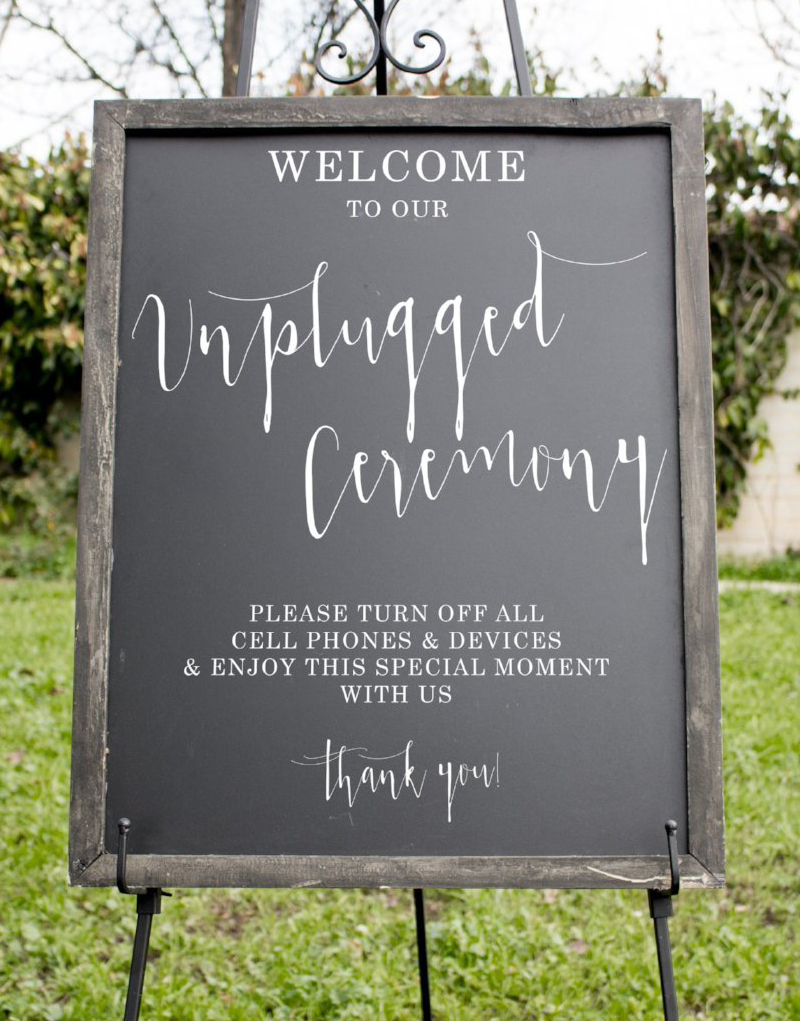 WELCOME
TO OUR
Unplugged
Ceremony
PLEASE TURN OFF ALL
CELL PHONES & DEVICES
& ENJOY THIS SPECIAL MOMENT
WITH US
thank you!